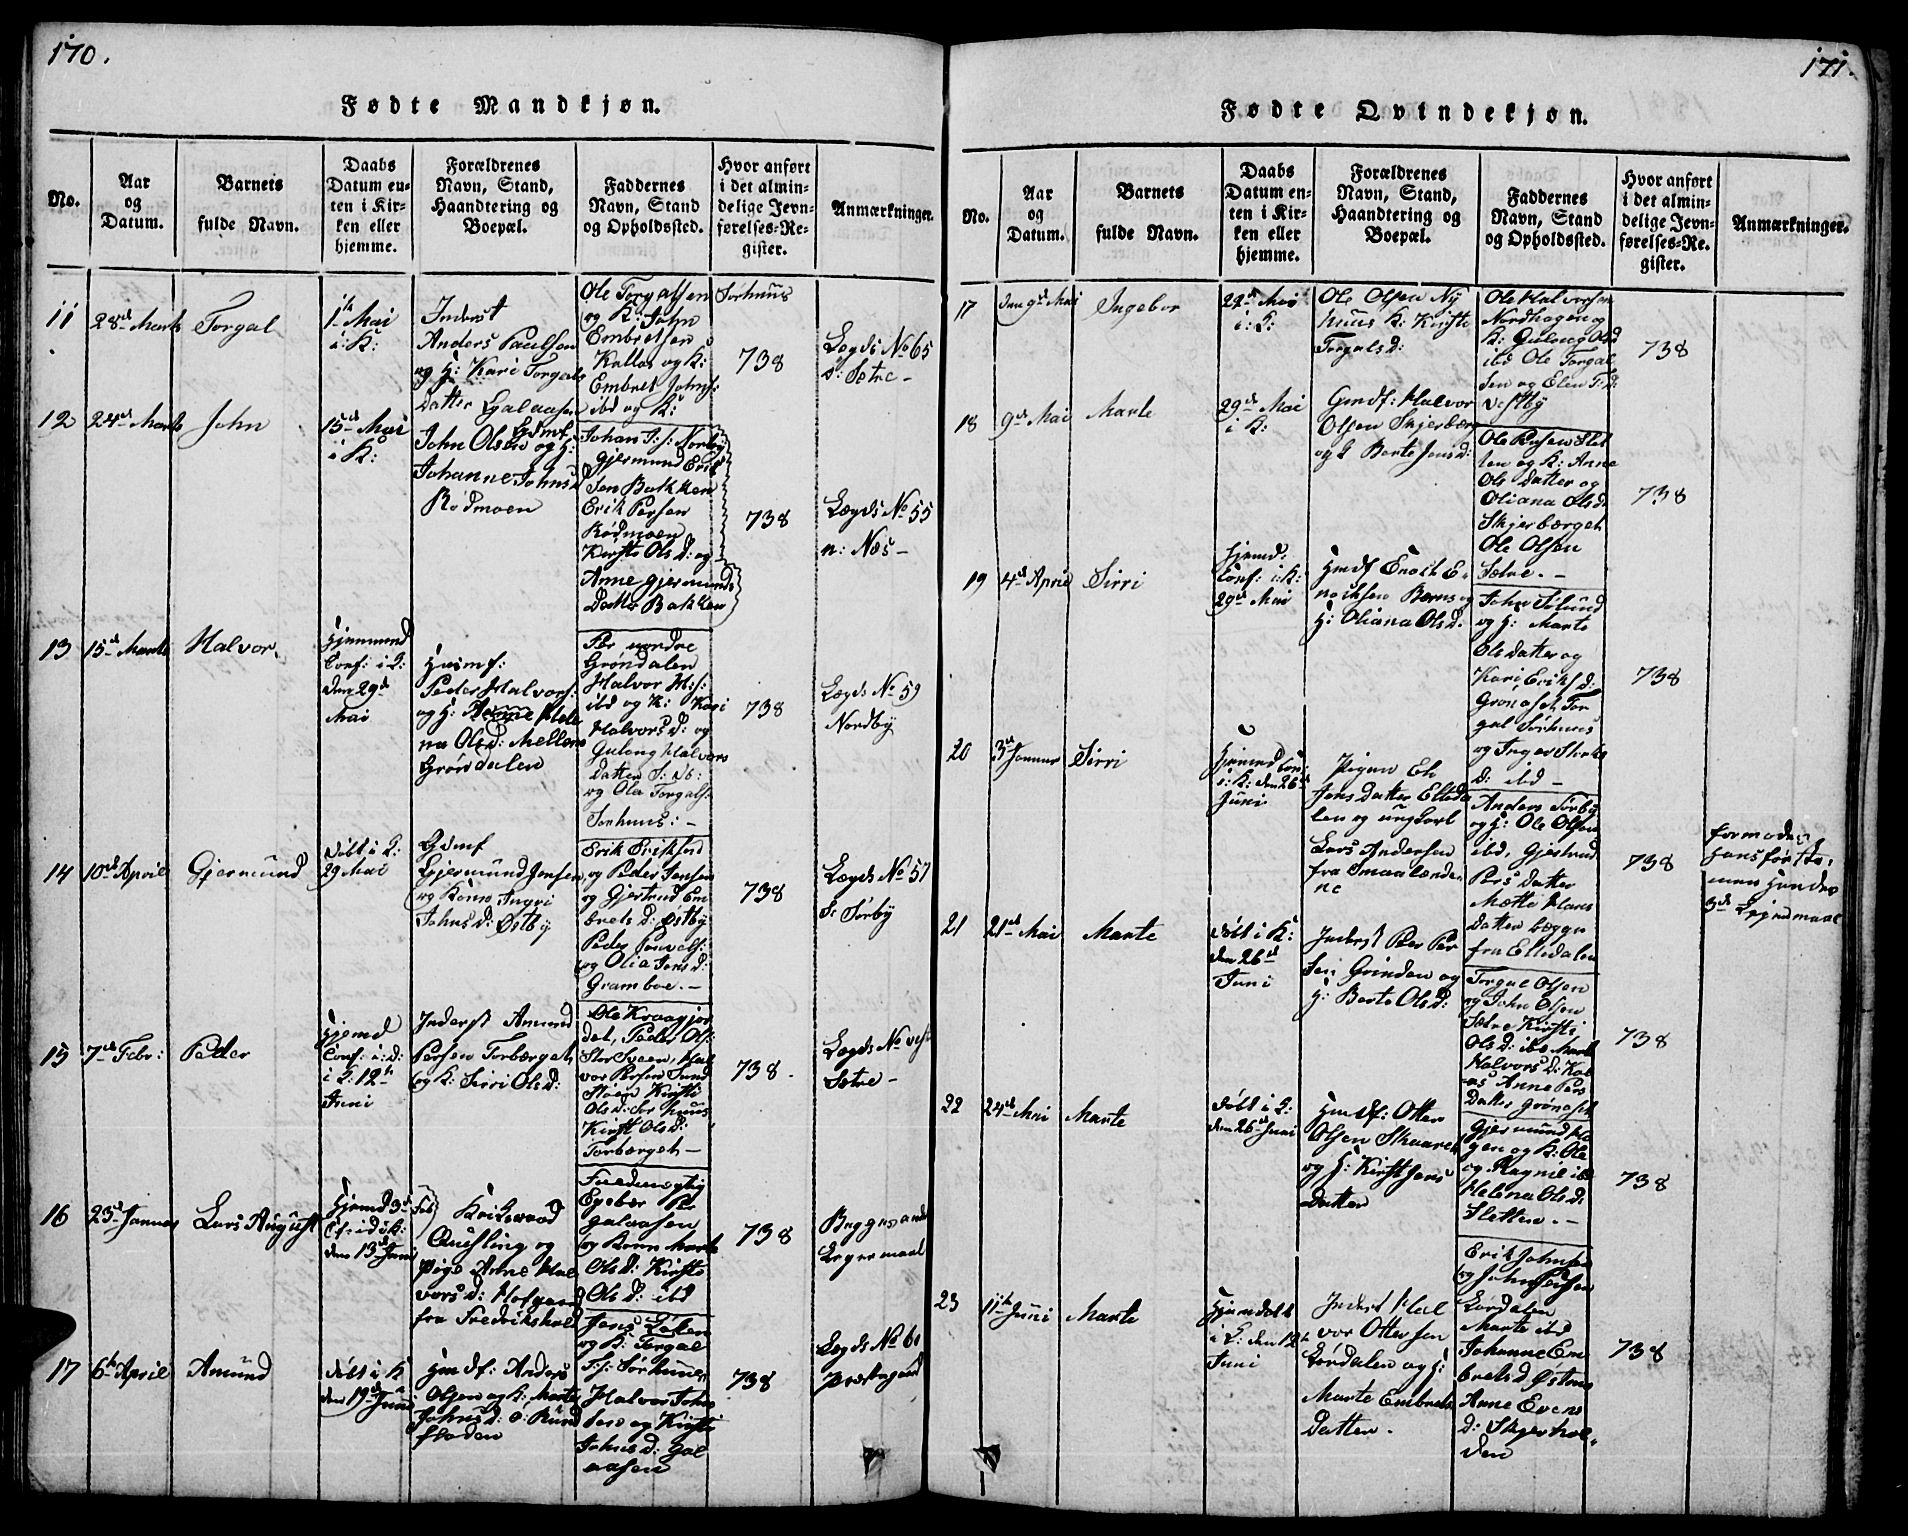 170.
Fødte Mandkjøn.
No.
Aar
og
Datum.
Barnets
fulde Navn.
Daabs
Datum en-
ten i Kir-
ken eller
hjemme.
Forældrenes
Navn, Stand,
Haandtering og
Boepæl.
Faddernes
Navn, Stand
og Opholdssted.
Hvor anført
i det almin-
delige Jevn-
førelses-Re-
gister.
Anmærkninger.
11
28de Marts
Torgal
1ste Mai
i: K:
Inderst
Anders Paulsen
og H: Kari Torgals
Datter Galaasen
Ole Torgalsen Sorhuus
og K: John
Embretsen
Kallas og K:
Embret Johns:
ibd og K:
738
Lægds No 65
S: Setre -
12
24de Marts
John
15de Mai
i K:
Gdmf
John Olsen og H:
Johanne Johns d
Rödmoen
Johan J: s: Norby
Gjermund Erik
sen Bakken
Erik Persen
Rödmoen
Kirsti Ols D: og
Anne Gjermunds
Datter Bakken
738
Lægds No 55
n: Næs -
13
15de Marts
Halvor.
Hjemmend
Conf: i K:
den 29de
Mai
Husmf:
Peder Halvors:
og H: Anne Hele
na Ols D: Mellem
Gröndalen
Per nordre
Gröndalen
Halvor H: s:
ibd og K: Kari
Halvors D: og
Guloug Halvors
Datter S: st:
og Ole Torgals:
Sorhuus: -
738
Lægds No 59
Nordby
14
10de April
Gjermund
Döbt i K:
29 Mai
Gdmf
Gjermund Jonsen
og Kone Ingri
Johns D: Östby
Erik Eriksen
og Peder Jensen
og Gjertrud Em
brets D: Östby
Peder Povels:
og Olia Jens D:
Gramboe. -
738
Lægds No 57
S: Sörby
15
7de Febr:
Peder
Hjemd
Conf: i: d:
i K: 12te
Juni
Inderst Amund
Persen Torberget
og K: Sirri Ols D:
Ole Kraagjor
det, Peder Ols:
Stor Sveen, Hal
vor Persen Sund
Moen Kirsti
Ols D: Sorhuus
Kirsti Ols D:
Torberget -
738 -
Lægds No vest
Setre -
16
23de Januar
Lars August
Hjemd 3de Feb
Cf: id: i K:
den 13de Juni
Qvisling og
Pige Anne Hal
vors D: Hofgaard
fra Fredrikshald
Egeber P:
Galaasen
og Kone Marte
Ols D: Kirsti
Ols D: ibd
738
Begges andet
Legermaal
17
6te April
Amund
Döbt i K
den 19de Juni
Hmdf: Anders
Olsen og K: Marte
Johns D: ö: Rund
floden
Jens Löken
og K: Torgal
T: s: Sörhuus
Halvor John
sen og Kirsti
Johns D: Gal
aasen
738
Lægds No 61
Præstegaard
171.
Fødte Qvindekjøn.
No.
Aar
og
Datum.
Barnets
fulde Navn.
Daabs
Datum en-
ten i Kir-
ken eller
hjemme.
Forældrenes
Navn, Stand,
Haandtering og
Boepæl.
Faddernes
Navn, Stand
og Opholdssted.
Hvor anført
i det almin-
delige Jevn-
førelses-Re-
gister.
Anmærkninger.
17
den 9de Mai
Ingebor
29de Mai
i: K:
Ole Olsen Ny
huus K: Kirsti
Torgals d:
Ole Halvorsen
Nordhagen og
K: Guloug Ols d
ibd Ole Torgal
sen og Elen T: D:
Vestby
738
18
9de Mai
Marte
29de Mai
i K:
Gmdf: Halvor
Olsen Skjerbæk
og H Berte Jens d:
Ole Persen Slet
ten og K: Anne
Ols Datter og
Oliana Ols d.
Skjerberget
Ole Olsen
Sætre. -
738
19
4de April
Sirri
Hjemd:
Conf: i: K:
29de Mai
Hmdf Enoch E-
nochsen Bærns og
H: Oliana Ols d.
John Sölund
og H: Marte
Ols Datter og
Kari Eriks D:
Grönaset Tor
gal Sörhuus
og Inger
D: ibd -
738
20
3de Januar
Sirri
Hjemmd Con:
i: K: den 26de
Juni
Pigen Eli
Jens Datter Elleda
len og ungkarl
Lars Andersen
fra Smaalende-
ne
Anders Sörby
og H: Ole Olsen
ibd, Gjertrud
Pers Datter
Mætte Hans
Datter begge
fra Elledalen
738
formodes
hans förste,
men hendes
3de Lejermaal
21
21de Mai
Marte
Döbt i K:
den 26de
Juni
Inderst Peer Per
sen Grinden og
H: Berte Ols d:
Torgal Olsen
og John Olsen
Sætre Kirsti
Ols D: ibd Marte
Halvors D: Kal
as Anne Pers
Datter Grönaset
738
22
24de Mai
Marte
Döbt i K:
den 26de Juni
Hmdf: Otter
Olsen Skaaret
og H: Kirsti Jens
Datter
Gjermund Ha
gen og K: Ole
og Magnil ibd
Helena Ols D:
Sletten. -
738
23
11te Juni
Marte
Hjemdöbt
i K: den 12te
Juni
Inderst Hal
vor Ottersen
Lördalen og H:
Marte Embrets
Datter.
Erik Johnsen
og John Persen
Lördalen
Marte ibd
Johanne Em
brets d Östnes
Anne Evens
D: Skjerhol-
den
738